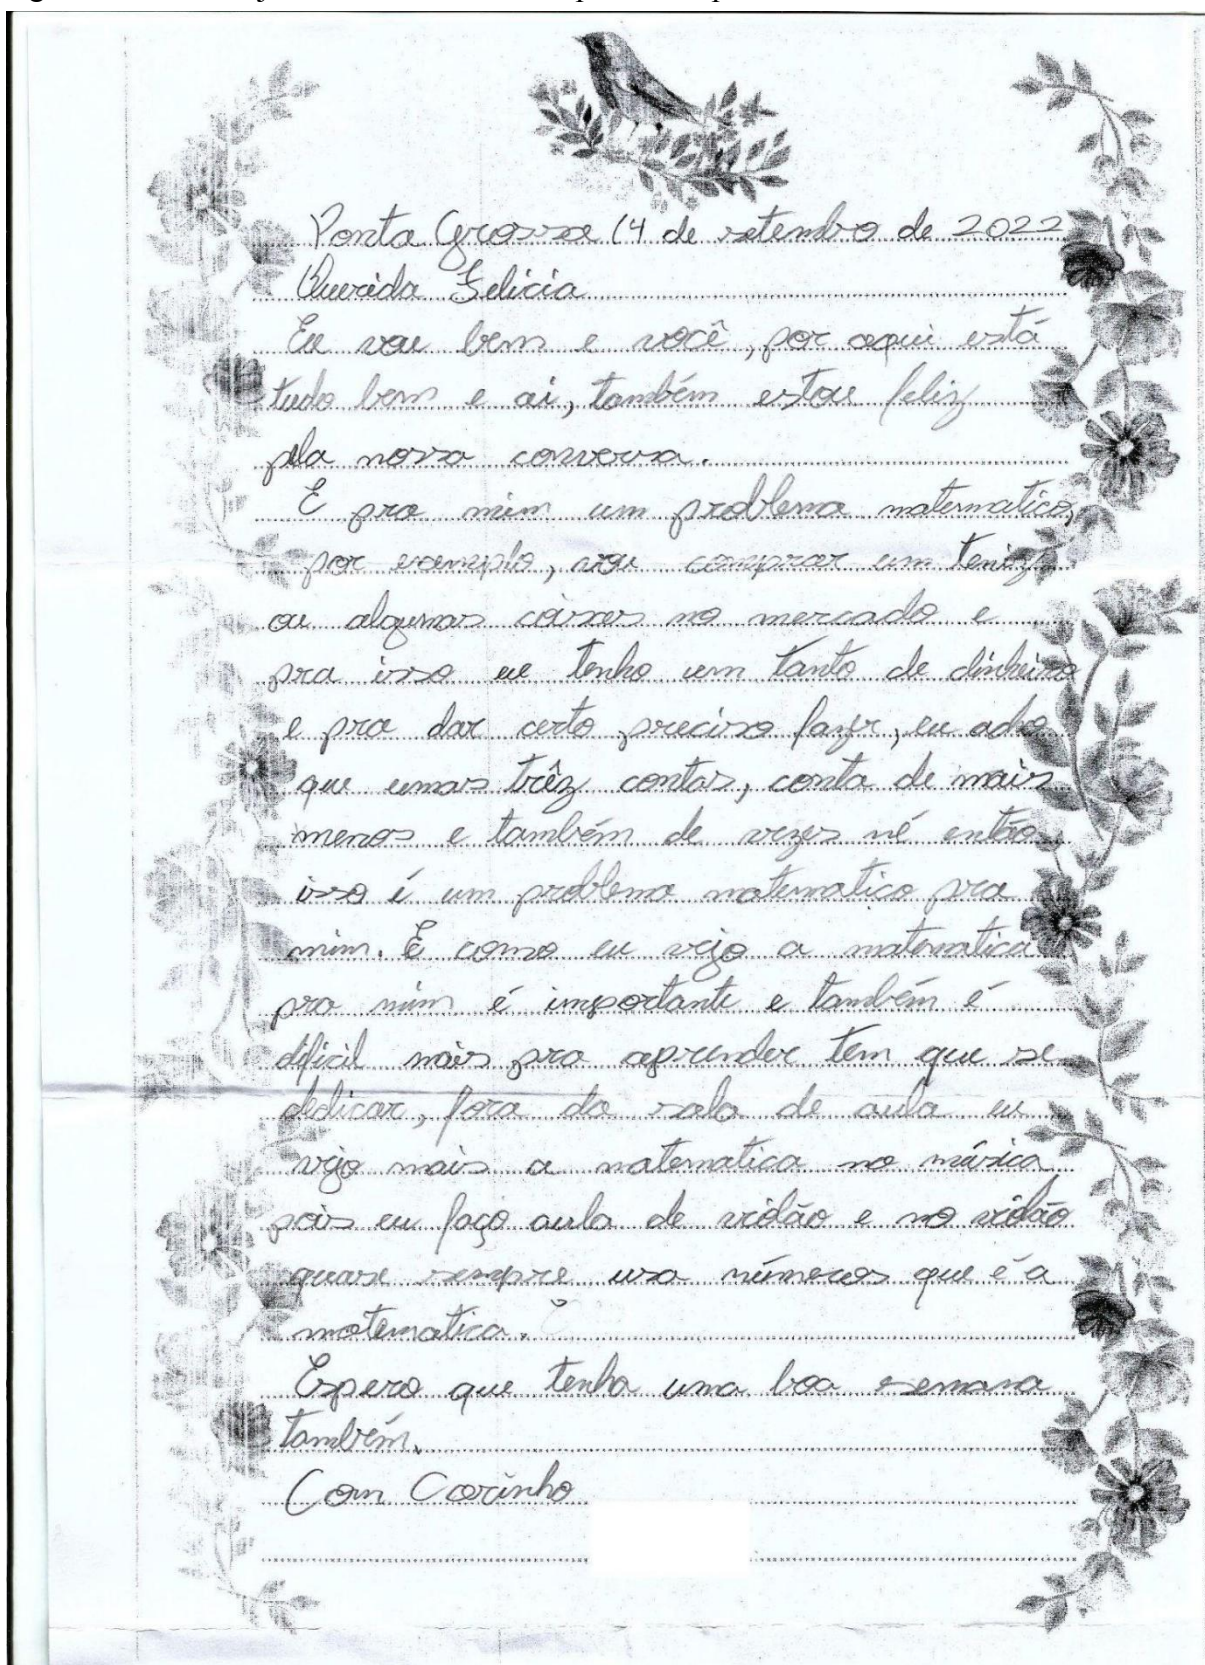 Ponta Grossa 14 de setembro de 2022
Querida Felicia
Eu vou bem e você, por aqui está
tudo bem e ai, também estou feliz
pela nossa conversa.
E pra mim um problema matematico,
por exemplo, vou comprar um teniz
ou algumas coisas no mercado e
pra isso eu tenho um tanto de dinheiro
e pra dar certo preciso fazer, eu acho
que umas trêz contas, conta de mais
menos e também de vezes né então
isso é um problema matematico pra
mim. E como eu vejo a matematica
pra mim é importante e também é
dificil mais pra aprender tem que se
dedicar, fora da sala de aula eu
vejo mais a matematica na música
pois eu faço aula de violão e no violão
quase sempre usa números que é a
matematica.
Espero que tenha uma boa semana
também.
Com Carinho